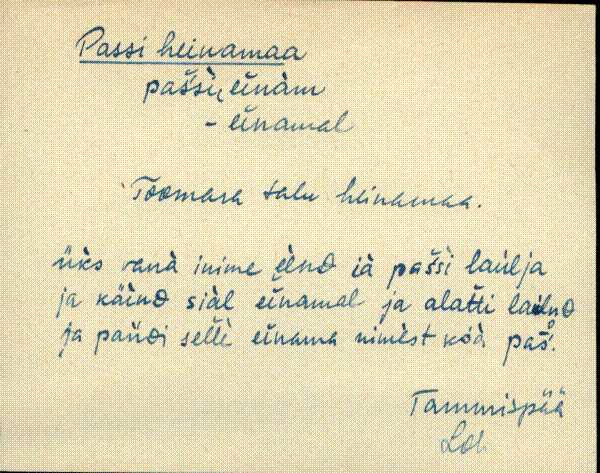 Passi heinamaa
paš̀si, einàm
- einamal
Toomara talu heinamaa.
üks vanà inime èènD ià paš̀si laulja
ja käinD siàl einamal ja alatti launD
ja pandi sellè einama nimèst köà paš̀.
Tammispää